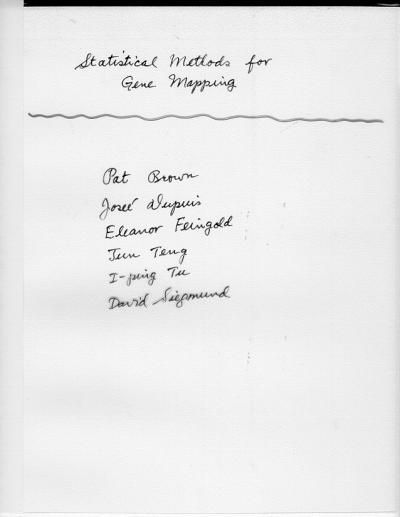 Statistical Methods for
Gene Mapping
Pat Brown
Joseé Dupuis
Eleanor Feingold
Jun Teng
I-ping Tu
David Siegmund